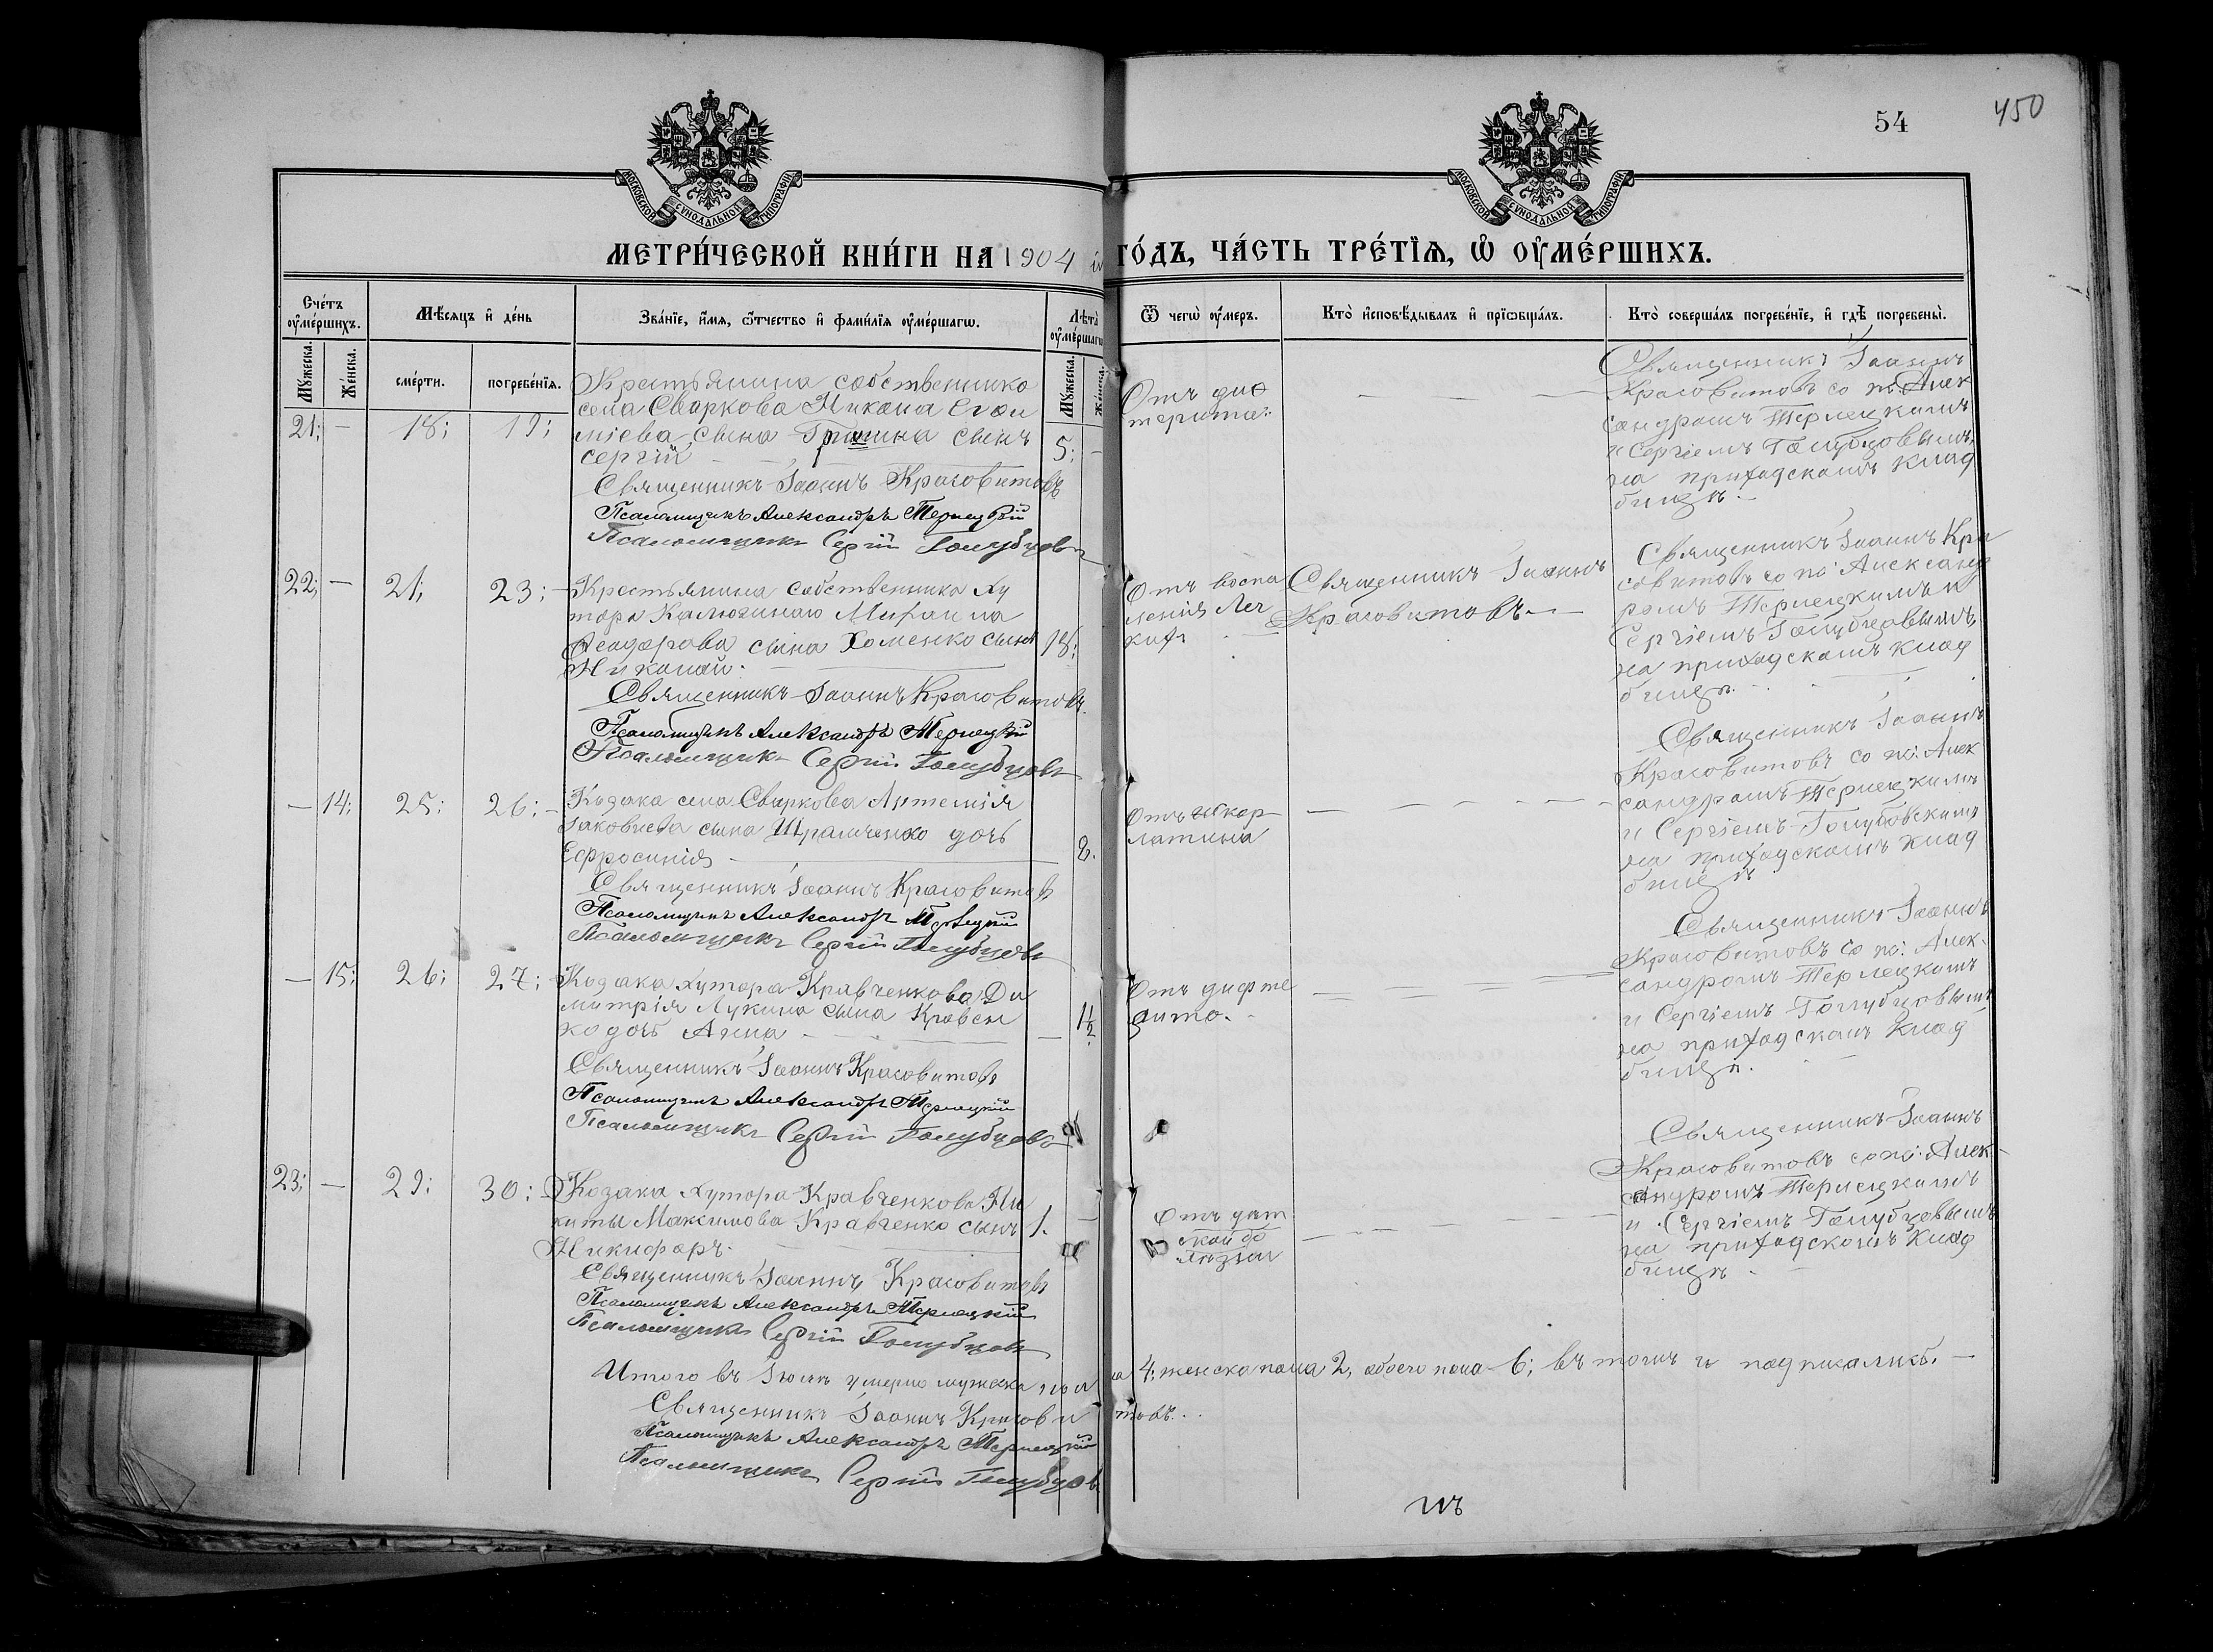 54
450
МОСКОВСКОЙ СѴНОДАЛЬНОЙ ТИПОГРАФІИ
МОСКОВСКОЙ СѴНОДАЛЬНОЙ ТИПОГРАФІИ
МЕТРИ́ЧЕСКОЙ КНИ́ГИ НА 1904 й ГО́ДЪ, ЧА́СТЬ ТРЕ́ТЇѦ, Ѡ҆ ОУ҆МЕ́РШИХЪ.
Сче́тъ оу҆ме́ршихъ.
Мѣ́сяцъ и҆ де́нь
Зва́нїе, и҆́мѧ, ѻ҆́тчество и҆ фамі́лїѧ оу҆ме́ршагѡ.
Лѣ́та оу҆ме́ршагѡ
Ѿ чегѡ̀ оу҆́меръ.
Кто̀ и҆сповѣ́дывалъ и҆ прїѡбща́лъ.
Кто̀ соверша́лъ погребе́нїе, и҆ гдѣ̀ погребены̀.
Мꙋ́жеска. Же́нска.
сме́рти. погребе́нїѧ.
Мꙋ́жеска. Же́нска.
21; — 18; 19;
Крестьянина собственника
села Сваркова Никона
сына сынъ
Сергій 5;
Священникъ Іоаннъ Красовитовъ
Псаломщикъ Александръ Терлецкій
Псаломщикъ Сергій Голубцовъ
Отъ диф
терита.
Священникъ Іоаннъ
Красовитовъ со пс: Алек
сандромъ Терлецкимъ
и Сергіемъ Голубцовымъ,
на приходскомъ клад
бищѣ.
22; — 21; 23;
Крестьянина собственника ху
тора Калюжнаго Михаила
Ѳеодорова сына Хоменко сынъ 18;
Николай.
Священникъ Іоаннъ Красовитовъ
Псаломщикъ Александръ Терлецкій
Псаломщикъ Сергій Голубцовъ
Отъ воспа
ленія лег
кихъ
Священникъ Іоаннъ
Красовитовъ
Священникъ Іоаннъ Кра
совитовъ со пс: Александ
ромъ Терлецкимъ и
Сергіемъ Голубцовымъ,
на приходскомъ клад
бищѣ.
— 14; 25; 26;
Козака села Сваркова Артемія
Іаковлева сына дочь
Ефросинія
Священникъ Іоаннъ Красовитовъ
Псаломщикъ Александръ Терлецкій
Псаломщикъ Сергій Голубцовъ
Отъ скар
латина
Священникъ Іоаннъ
Красовитовъ со пс: Алек
сандромъ Терлецкимъ
и Сергіемъ
на приходскомъ клад
бищѣ
— 15; 26; 27;
Козака хутора Кравченкова Ди
митрія Лукина сына Кравчен
ко дочь Анна 1½
Священникъ Іоаннъ Красовитовъ
Псаломщикъ Александръ Терлецкій
Псаломщикъ Сергій Голубцовъ
Отъ дифте
рита.
Священникъ Іоаннъ
Красовитовъ со пс: Алек-
сандромъ Терлецкимъ
и Сергіемъ Голубцовымъ
на приходскомъ клад
бищѣ.
23; — 29; 30;
Козака хутора Кравченкова Ни
киты Максимова Кравченко сынъ 1.
Никифоръ.
Священникъ Іоаннъ Красовитовъ
Псаломщикъ Александръ Терлецкій
Псаломщикъ Сергій Голубцовъ
Отъ дѣт
ской бо
лѣзни
Священникъ Іоаннъ
Красовитовъ со пс: Алек-
сандромъ Терлецкимъ
и Сергіемъ Голубцовымъ
на приходскомъ клад
бищѣ.
Итого въ умерло мужеска пола 4; женска пола 2, обоего пола 6; въ томъ и подписались.
Священникъ Іоаннъ Красовитовъ.
Псаломщикъ Александръ Терлецкій
Псаломщикъ Сергій Голубцовъ